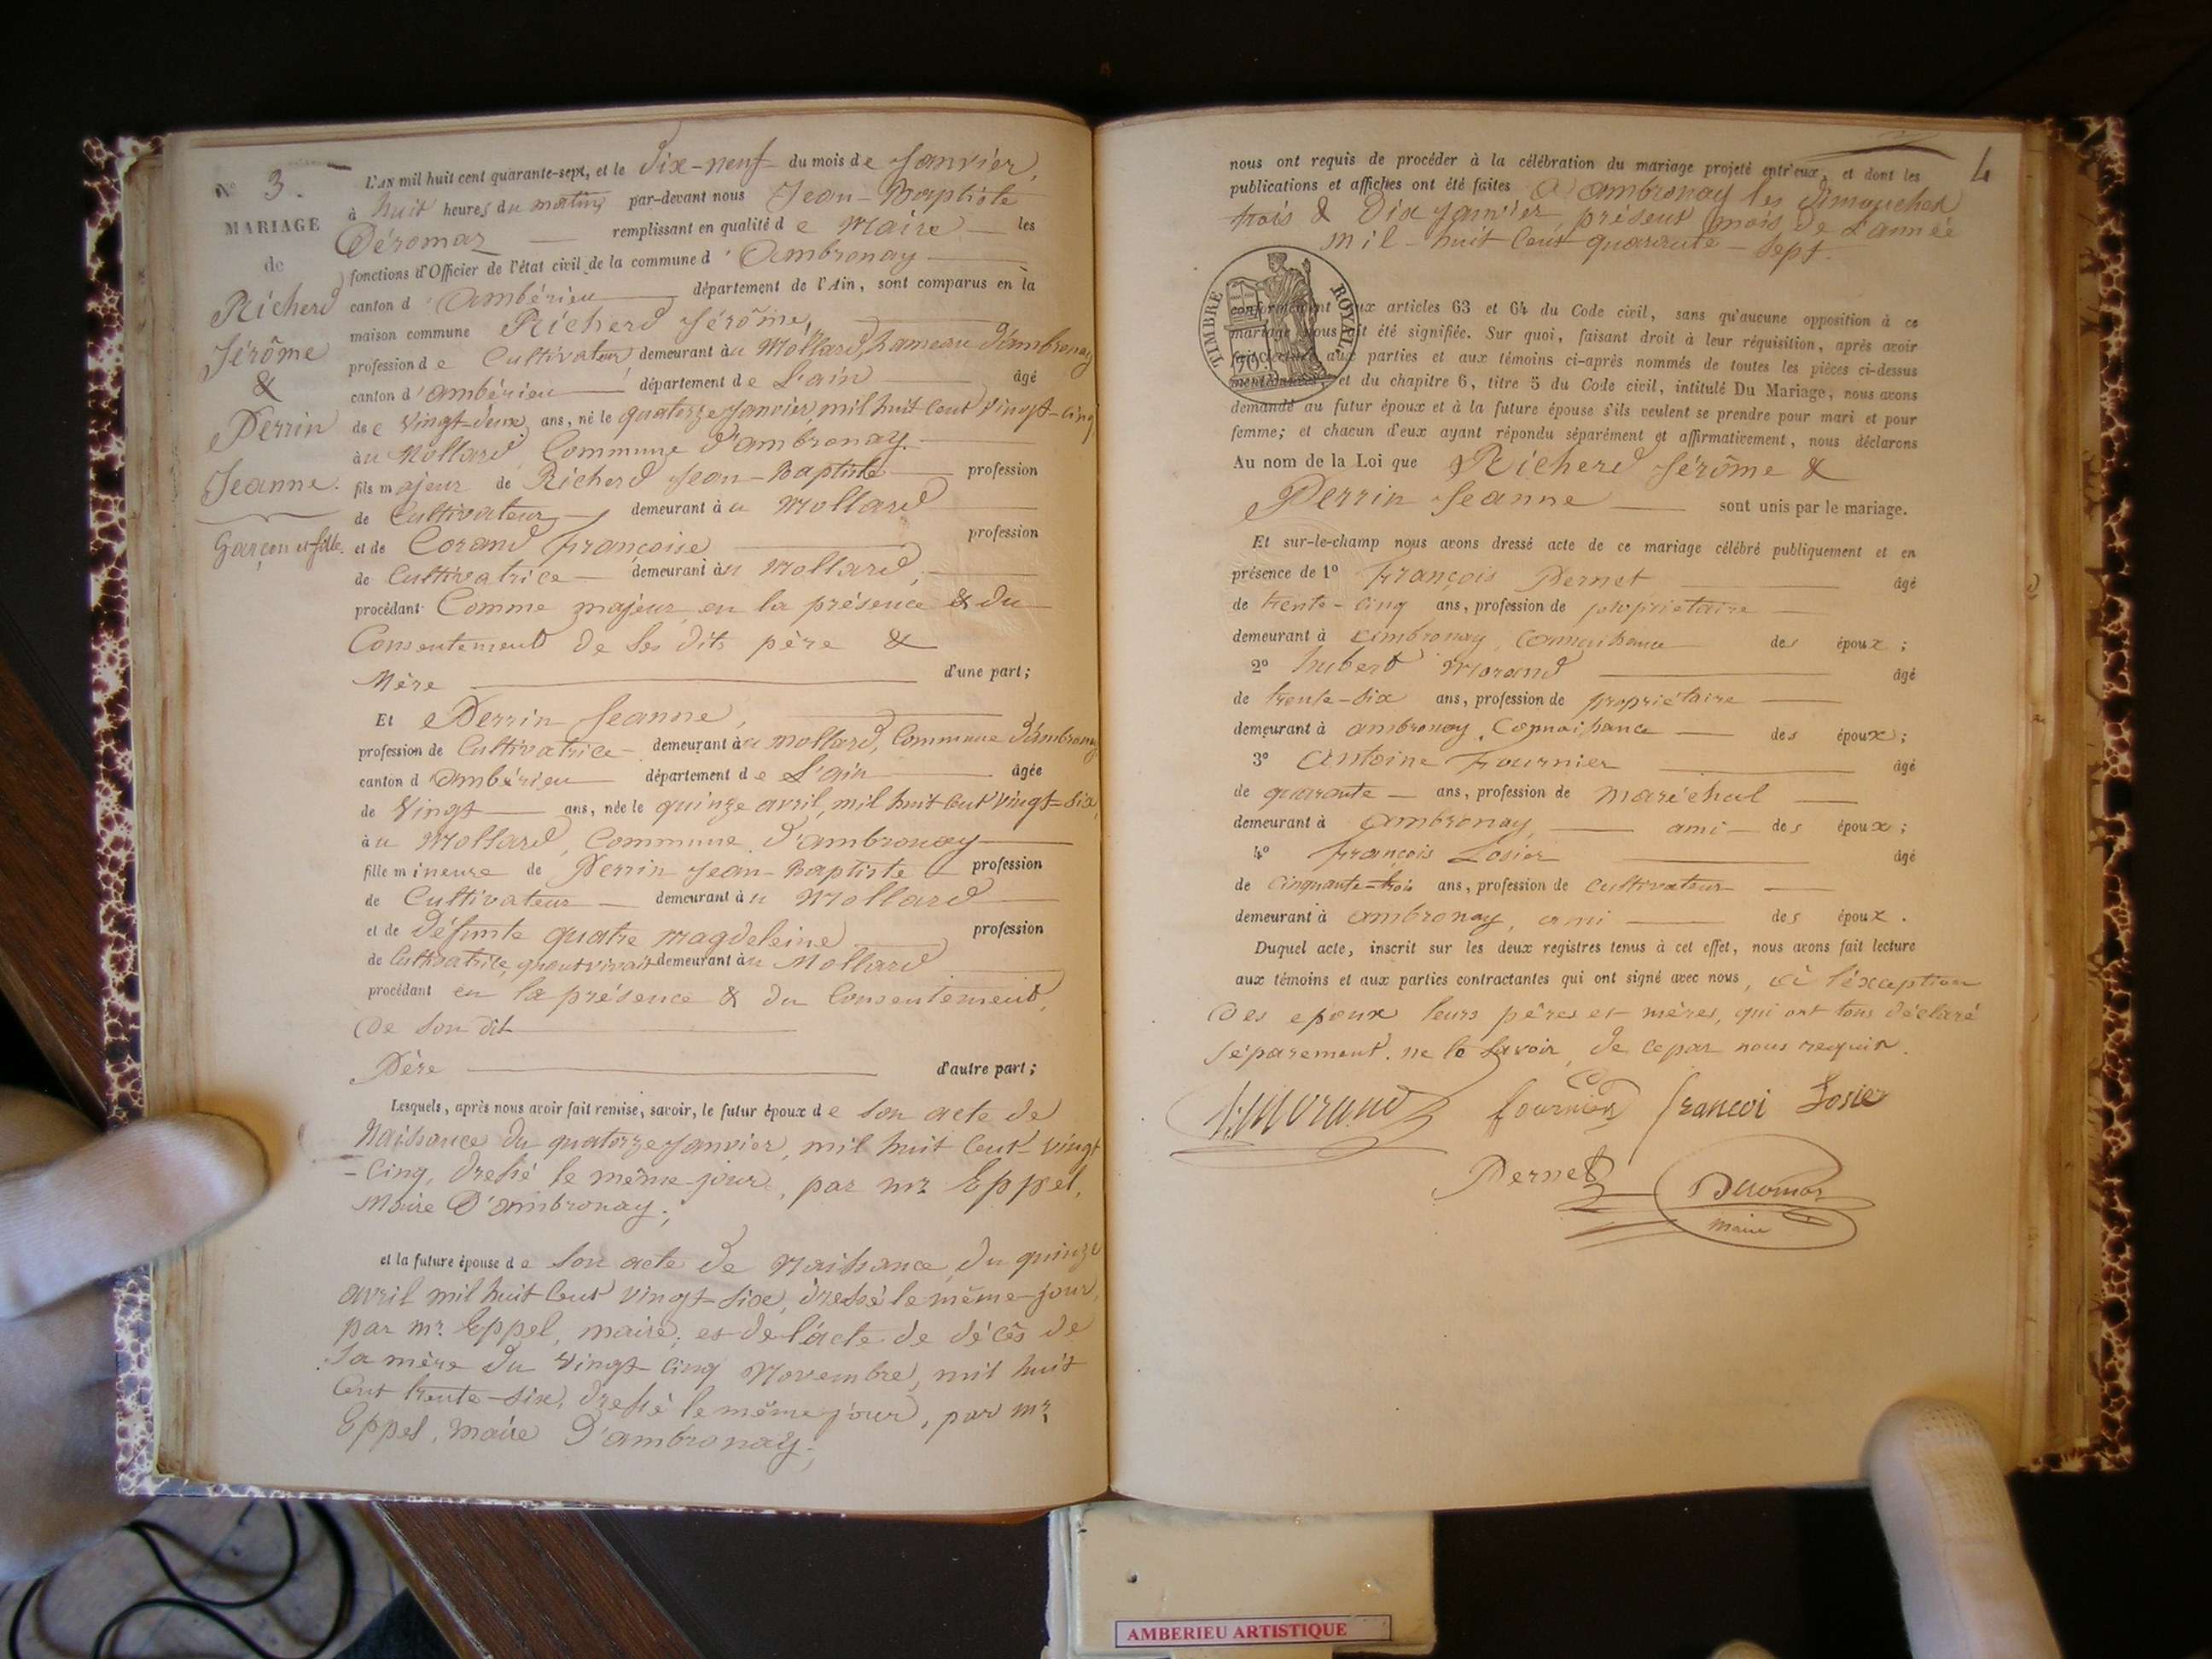 N° 3.
MARIAGE
de
Richerd
Jérôme
&
Perrin
Jeanne.
Garçon et fille.
L'AN mil huit cent quarante-sept, et le dix-neuf du mois de Janvier,
à huit heures du matin, par-devant nous Jean-Baptiste
Déromas remplissant en qualité de Maire les
fonctions d'Officier de l'état civil de la commune d'Ambronay
canton d'Ambérieu département de l'Ain, sont comparus en la
maison commune Richerd Jérôme,
profession de Cultivateur demeurant au Mollard, hameau d'ambronay
canton d'ambérieu département de L'ain âgé
de vingt-deux ans, né le quatorze Janvier mil huit cent vingt-cinq
au Mollard, Commune d'ambronay.
fils majeur de Richerd Jean-Baptiste profession
de Cultivateur demeurant au Mollard
et de Corand françoise profession
de Cultivatrice demeurant au Mollard,
procédant Comme majeur en la présence & du
Consentement de ses dits père &
Mère d'une part;
Et Perrin Jeanne,
profession de Cultivatrice demeurant au Mollard, Commune d'ambronay
canton d'ambérieu département de L'ain âgée
de vingt ans, née le quinze avril, mil huit cent vingt-six,
au Mollard, Commune d'ambronay
fille mineure de Perrin Jean-Baptiste profession
de Cultivateur demeurant au Mollard
et de défunte quatre magdeleine profession
de Cultivatrice, quand vivait demeurant au Mollard
procédant en la présence & du Consentement,
de son dit
Père d'autre part;
Lesquels, après nous avoir fait remise, savoir, le futur époux de son acte de
Naissance du quatorze Janvier, mil huit cent vingt
-cinq, dressé le même jour, par mr Eppel,
Maire d'ambronay;
et la future épouse de son acte de Naissance, du quinze
avril mil huit cent vingt-six, dressé le même jour,
par mr Eppel, maire; et de l'acte de décès de
sa mère du vingt-cinq Novembre, mil huit
cent trente-six, dressé le même jour, par mr
Eppel, maire d'ambronay;
4
nous ont requis de procéder à la célébration du mariage projeté entr'eux, et dont les
publications et affiches ont été faites à ambronay les dimanches
trois & dix janvier présent mois de L'année
mil-huit cent quarante-sept.
TIMBRE ROYAL
70
conformément aux articles 63 et 64 du Code civil, sans qu'aucune opposition à ce
mariage nous ait été signifiée. Sur quoi, faisant droit à leur réquisition, après avoir
fait lecture aux parties et aux témoins ci-après nommés de toutes les pièces ci-dessus
mentionnées, et du chapitre 6, titre 5 du Code civil, intitulé Du Mariage, nous avons
demandé au futur époux et à la future épouse s'ils veulent se prendre pour mari et pour
femme; et chacun d'eux ayant répondu séparément et affirmativement, nous déclarons
Au nom de la Loi que Richerd Jérôme &
Perrin Jeanne sont unis par le mariage.
Et sur-le-champ nous avons dressé acte de ce mariage célébré publiquement et en
présence de 1° François Pernet âgé
de trente-cinq ans, profession de propriétaire
demeurant à ambronay, Connaissance des époux;
2° hubert Morand âgé
de trente-six ans, profession de propriétaire
demeurant à ambronay, Connaissance des époux;
3° Antoine Fournier âgé
de quarante ans, profession de maréchal
demeurant à Ambronay, ami des époux;
4° françois Losier âgé
de cinquante-trois ans, profession de cultivateur
demeurant à ambronay, ami des époux.
Duquel acte, inscrit sur les deux registres tenus à cet effet, nous avons fait lecture
aux témoins et aux parties contractantes qui ont signé avec nous, à l'exception
des époux leurs pères et mères, qui ont tous déclaré
séparement, ne le savoir, de ce par nous requis.
h. Morand fournier françoi Losier
Pernet Deromas
maire
AMBERIEU ARTISTIQUE